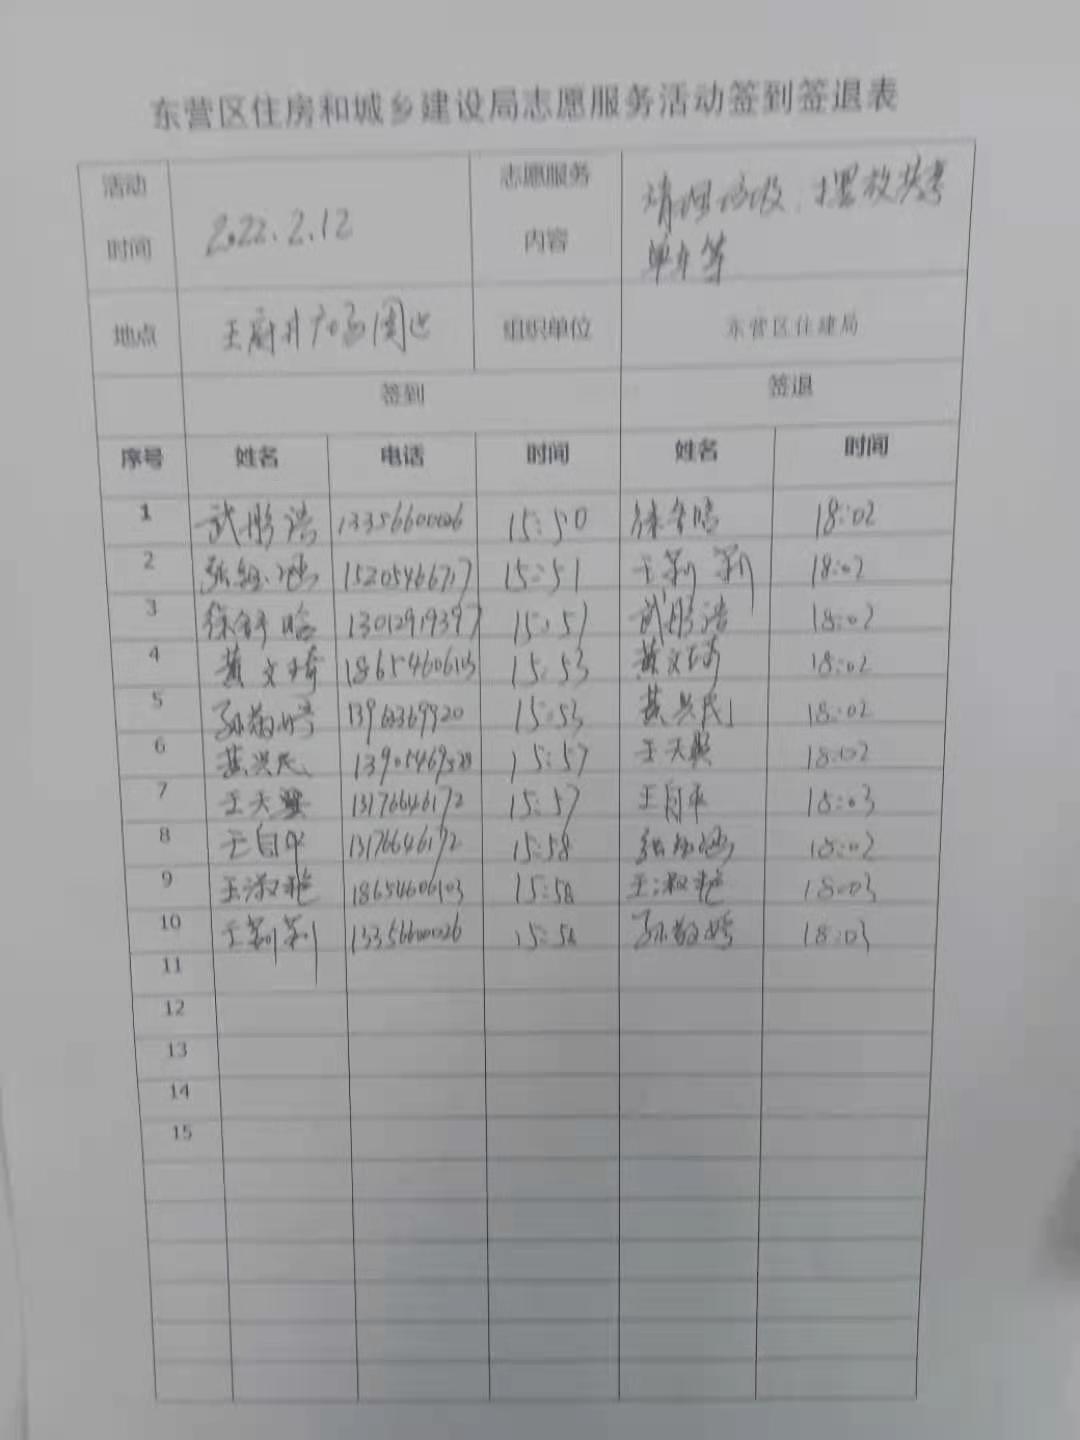 东营区住房和城乡建设局志愿服务活动签到签退表
活动时间 2022.2.12 志愿服务内容 清理垃圾、摆放共享单车等
地点 王府井广场周边 组织单位 东营区住建局
签到 签退
序号 姓名 电话 时间 姓名 时间
1 武彤浩 13356600026 15:50 18:02
2 15205466717 15:51 王莉莉 18:02
3 13012919397 15:51 武彤浩 18:02
4 黄文琦 18654606103 15:53 黄文琦 18:02
5 15:53 黄兴民 18:02
6 黄兴民 15:57 王天翼 18:02
7 王天翼 13176646172 15:57 王自平 18:03
8 王自平 13176646172 15:58 18:02
9 王淑艳 18654606103 15:58 王淑艳 18:03
10 王莉莉 13356600026 15:58 18:03
11
12
13
14
15